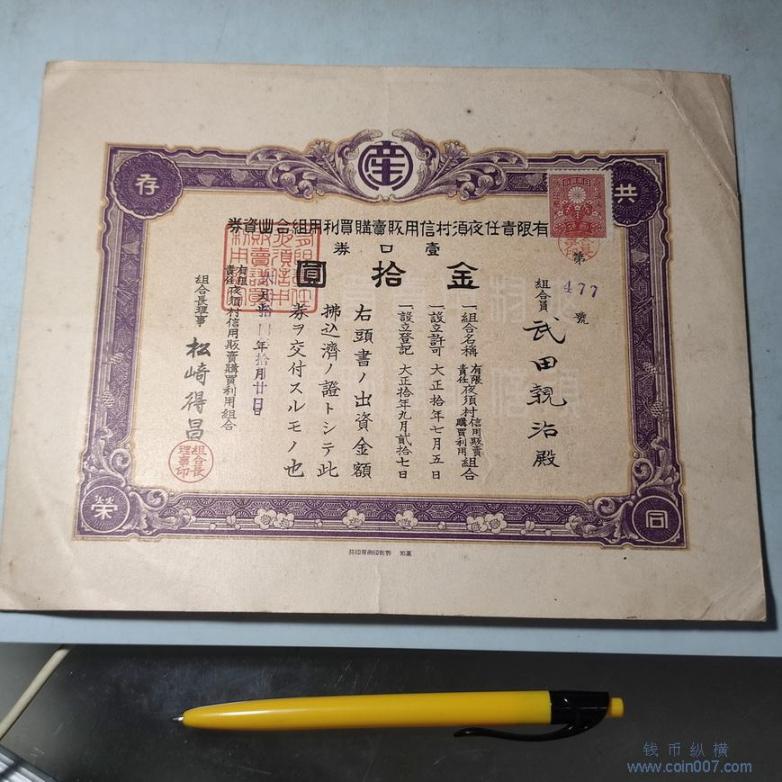 共存
同榮
産
有限責任夜須村信用販賣購買利用組合出資券
壹口券
金拾圓
第477號
組合員 武田親治殿
一組合名稱 有限責任夜須村信用販賣購買利用組合
一設立許可 大正拾年七月五日
一設立登記 大正拾年九月貳拾七日
右頭書ノ出資金額
拂込濟ノ證トシテ此
券ヲ交付スルモノ也
年拾月廿日
有限責任夜須村信用販賣購買利用組合
組合長理事 松崎得昌
組合長理事印
钱币纵横
www.coin007.com